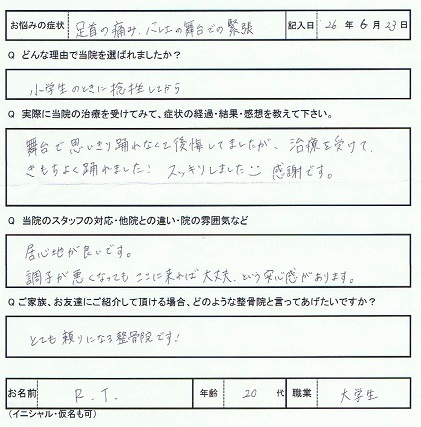 お悩みの症状 足首の痛み、バレエの舞台での緊張 記入日 26年 6月 23日
Q どんな理由で当院を選ばれましたか?
小学生のときに捻挫してから
Q 実際に当院の治療を受けてみて、症状の経過・結果・感想を教えて下さい。
舞台で思いきり踊れなくて後悔してましたが、治療を受けて、
きもちよく踊れました! スッキリしました 感謝です。
Q 当院のスタッフの対応・他院との違い・院の雰囲気など
居心地が良いです。
調子が悪くなっても ここに来れば大丈夫、という安心感があります。
Q ご家族、お友達にご紹介して頂ける場合、どのような整骨院と言ってあげたいですか?
とても頼りになる整骨院です!
お名前 R.T. 年齢 20代 職業 大学生
(イニシャル・仮名も可)